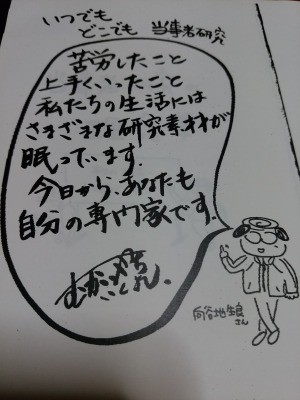 いつでも
どこでも 当事者研究
苦労したこと
上手くいったこと
私たちの生活には
さまざまな研究素材が
眠っています。
今日から、あなたも
自分の専門家です。
むかいやち
いくよし
向谷地生良
さん